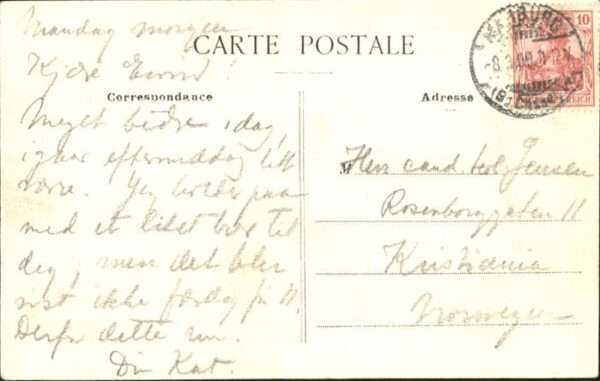 Mandag morgen
Kjære Eivind!
CARTE POSTALE
Correspondance
Meget bedre i dag,
igaar eftermiddag litt
værre. Jeg holder paa
med et litet brev til
dig, men det blir
nok ikke færdig før 11.
Derfor dette nu.
Din Kat.
Adresse
M
Herr cand teol Jensen
Rosenborggaten 11
Kristiania
Norwegen
10
REICH